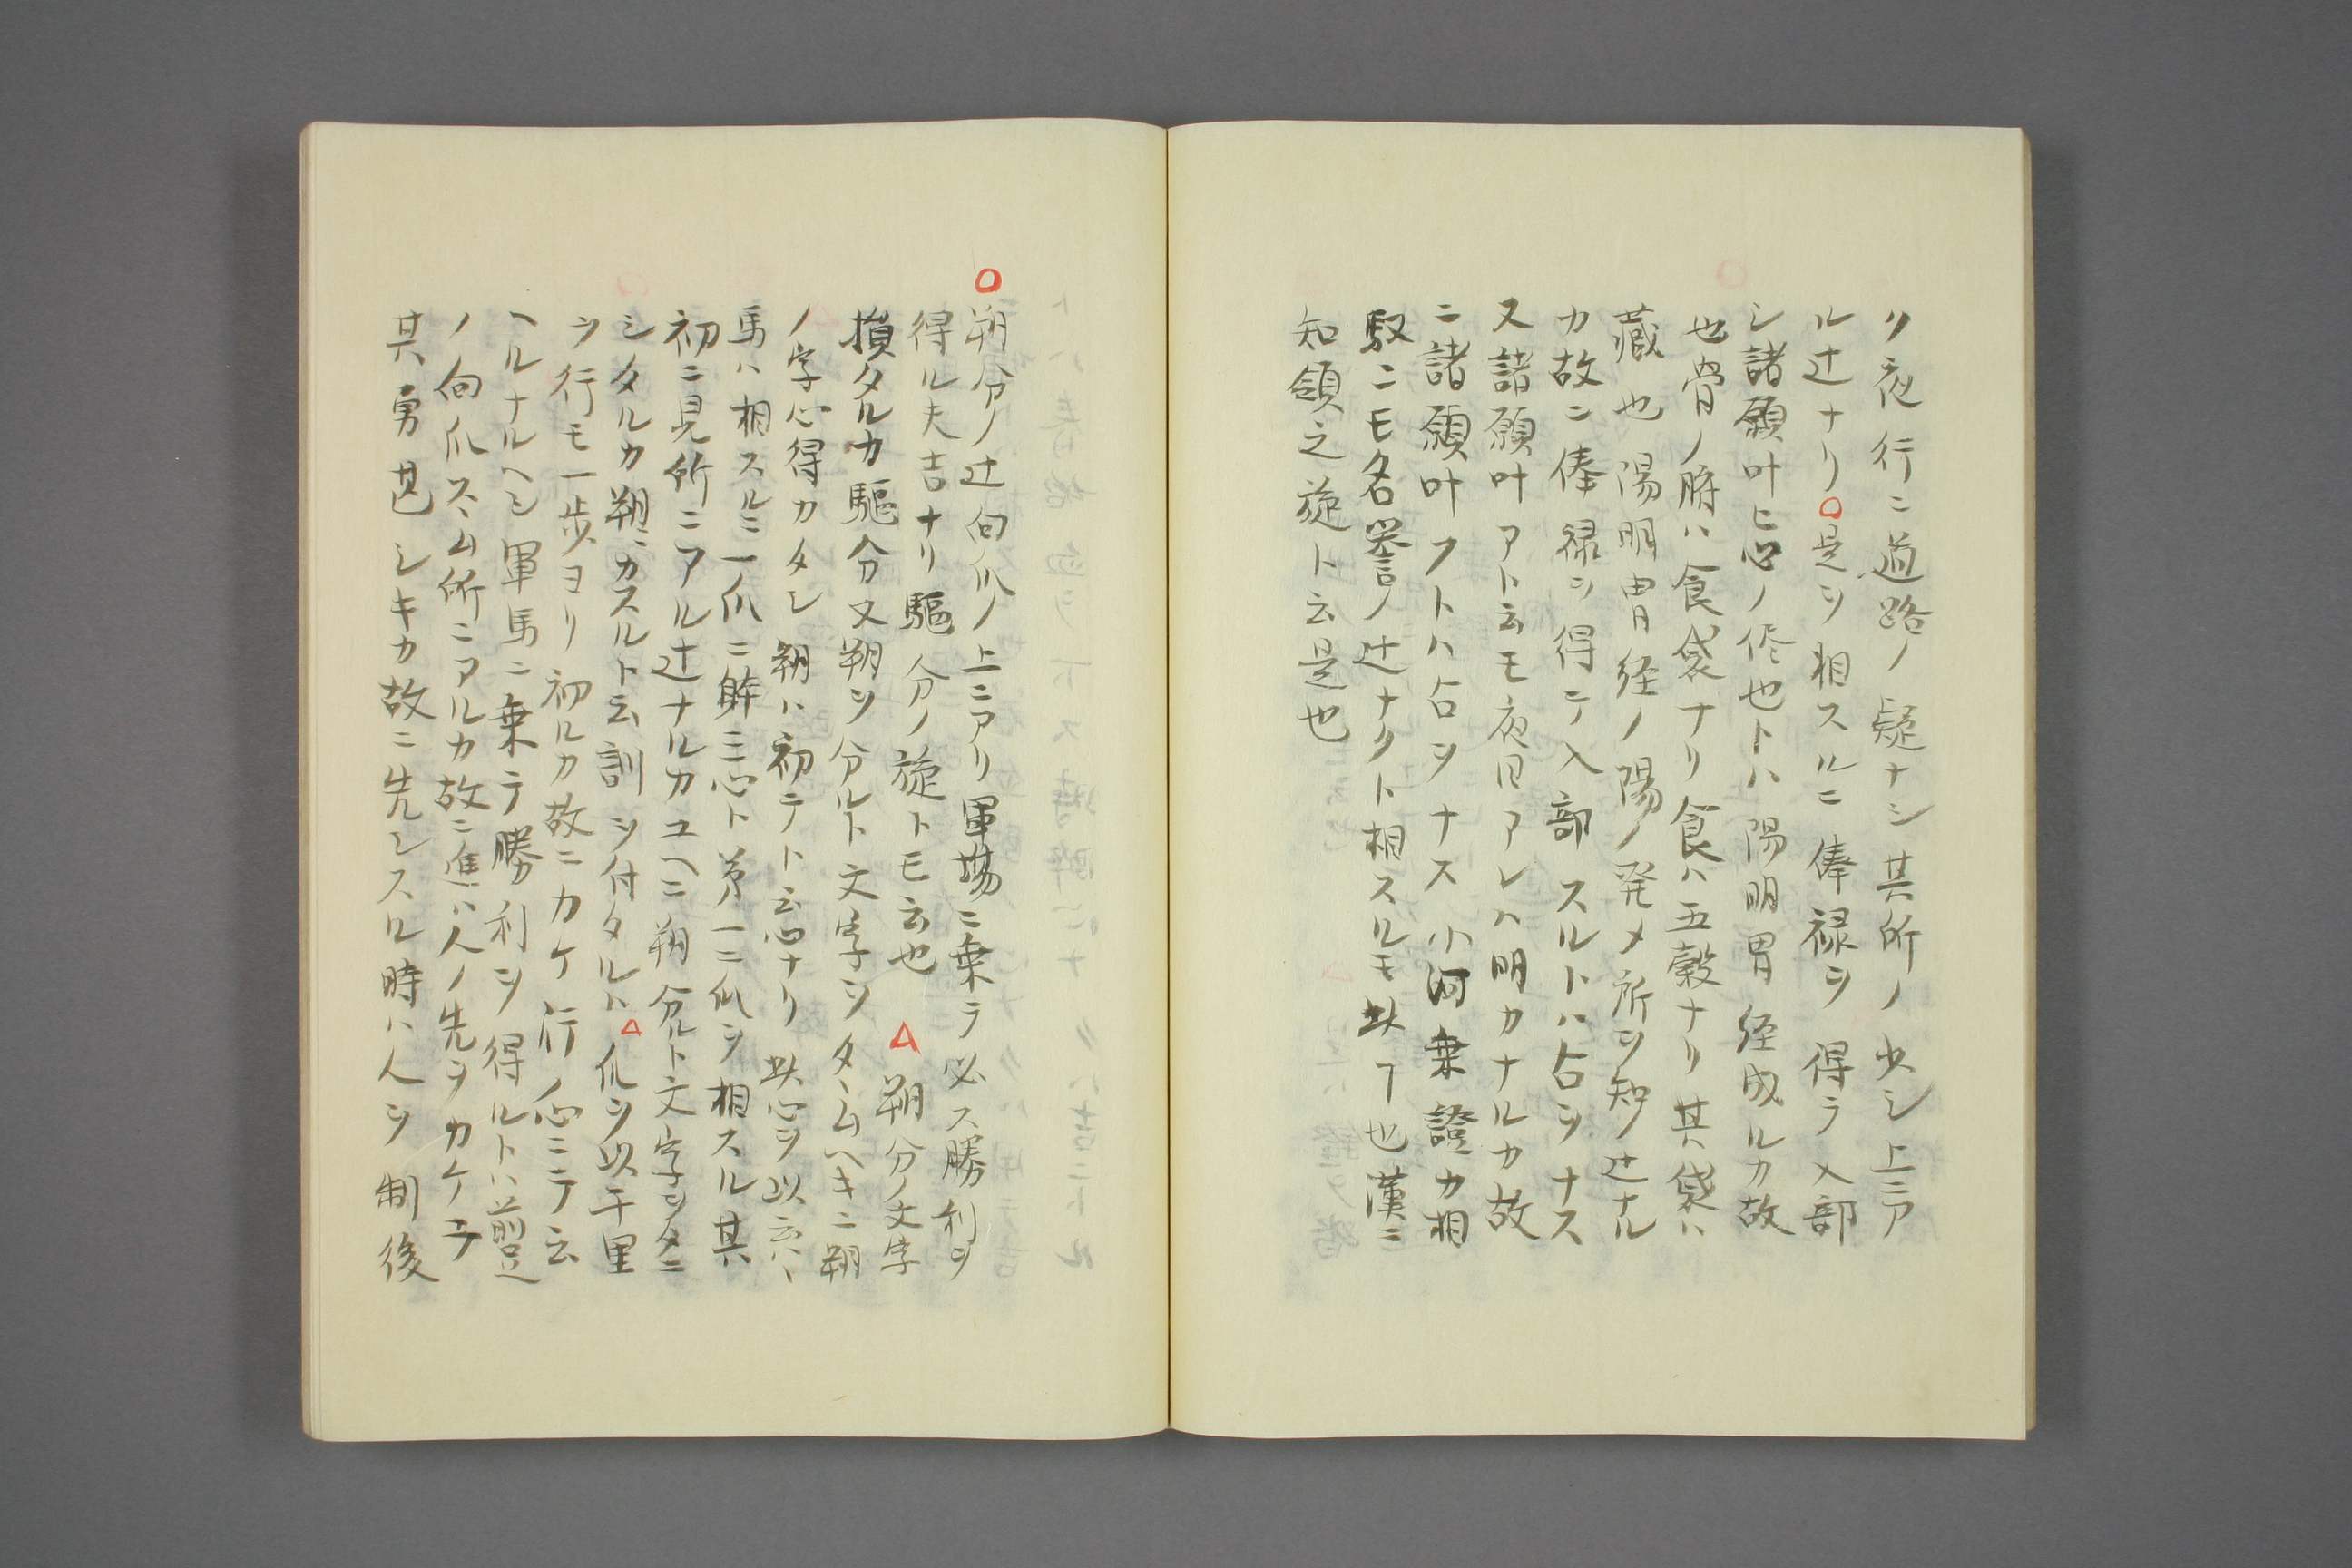 リ夜行ニ道路ノ疑ナシ其所ノ少シ上ニア
ル辻ナリ○是ヲ相スルニ俸禄ヲ得テ入部
シ諸願叶ヒ心ノ侭也トハ陽明胃経成ルカ故
也胃ノ腑ハ食袋ナリ食ハ五穀ナリ其袋ハ
蔵也陽明胃経ノ陽ノ発メ所ヲ知ツ辻ナル
カ故ニ俸禄ヲ得テ入部スルトハ占ヲナス
又諸願叶アト云モ夜目アレハ明カナルカ故
ニ諸願叶フトハ占ヲナス小河乗證カ相
馭ニモ名誉ノ辻ナクト相スルモ此ヿ也漢ニ
知領之旋ト云是也
○朔分ノ辻向爪ノ上ニアリ軍場ニ乗テ必ス勝利ヲ
得ル夫吉ナリ驅分ノ旋トモ云也△朔分ノ文字
損タルカ驅分又朔ヲ分ルト文字ヲタヽムヘキニ朔
ノ字心得カタシ朔ハ初テト云心ナリ此心ヲ以云ハヽ
馬ハ相スルニ一爪ニ眸三心ト第一ニ爪ヲ相スル其
初ニ見所ニアル辻ナルカユヘニ朔分ルト文字ヲタニ
シタルカ朔ニカスルト云訓ヲ付タルハ△爪ヲ以千里
ヲ行モ一歩ヨリ初ルカ故ニカケ行ノ心ニテ云
ヘルナルヘシ軍馬ニ乗テ勝利ヲ得ルトハ前足
ノ向爪スヽム所ニアルカ故ニ進ハ人ノ先ヲカケテ
其勇甚シキカ故ニ先ンスル時ハ人ヲ制後